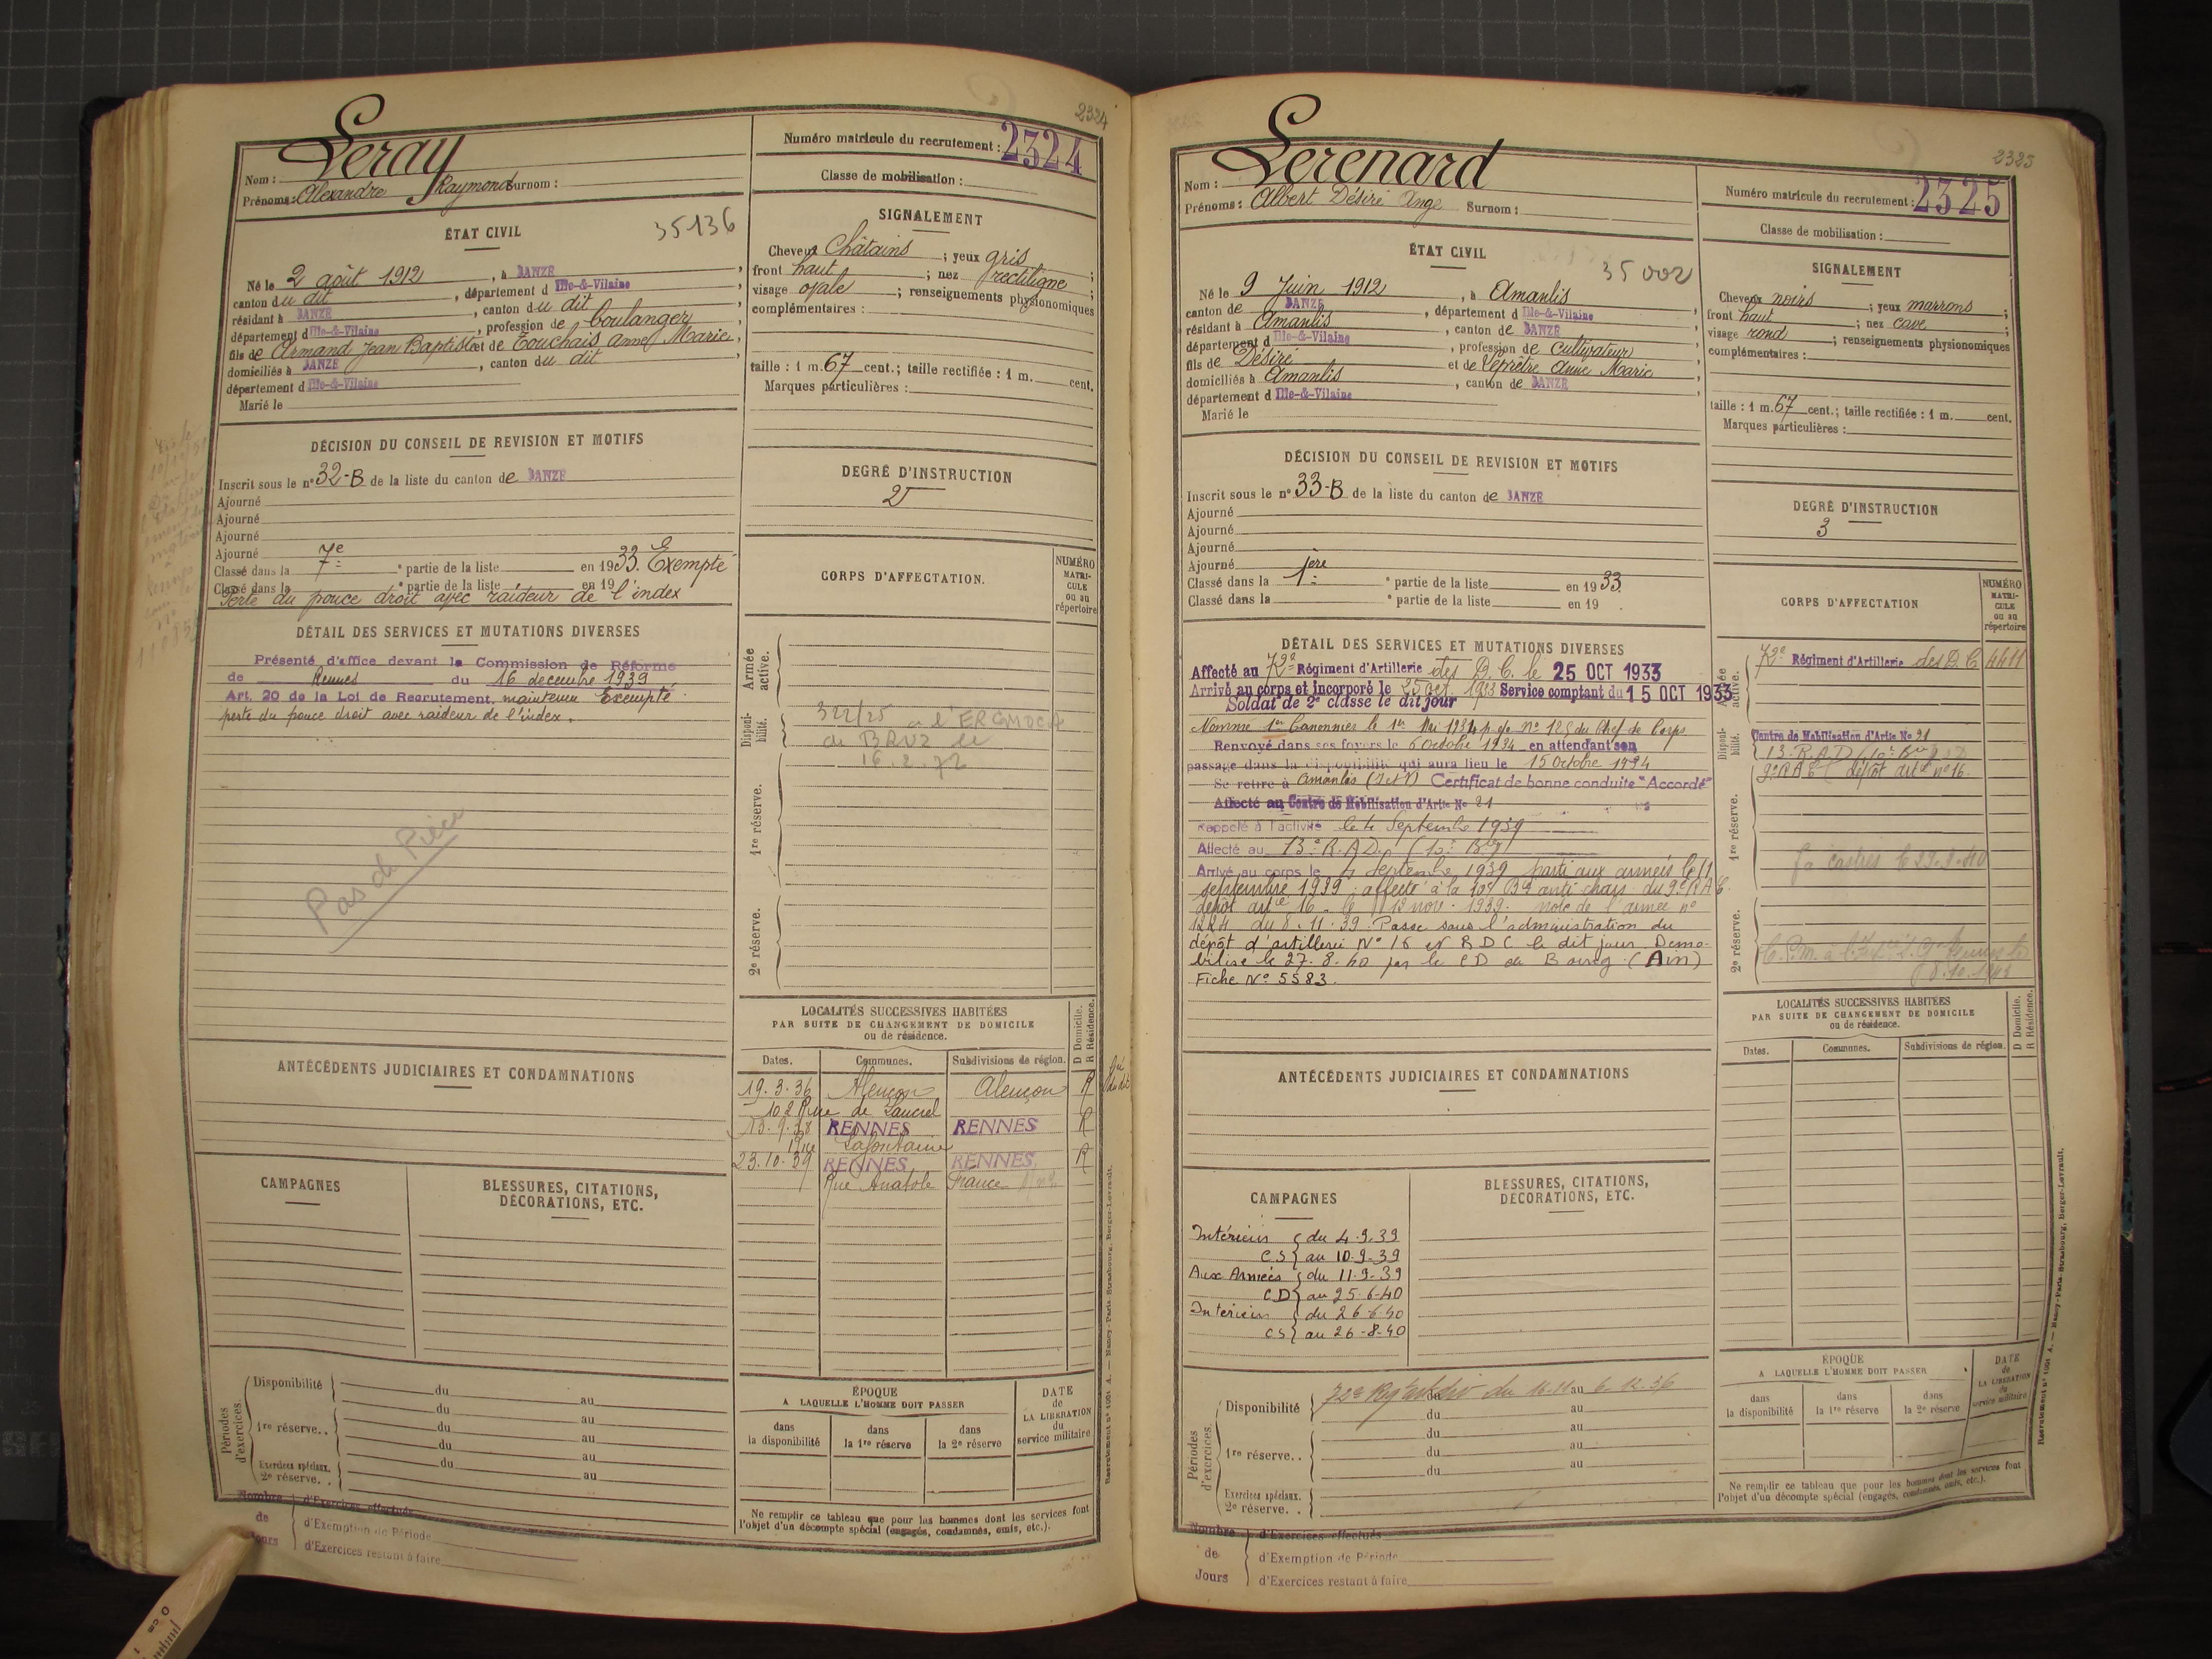 2324
Nom : Leray
Prénoms : Alexandre Raymond Surnom :
Numéro matricule du recrutement : 2324
Classe de mobilisation :
ÉTAT CIVIL
35136
Né le 2 août 1912, à JANZÉ,
canton du dit, département d Ille-&-Vilaine
résidant à JANZÉ, canton du dit,
département d Ille-&-Vilaine, profession de boulanger,
fils de Armand Jean Baptiste et de Touchais Anne Marie,
domiciliés à JANZÉ, canton du dit,
département d Ille-&-Vilaine
Marié le
SIGNALEMENT
Cheveux Châtains ; yeux gris ;
front haut ; nez rectiligne ;
visage ovale ; renseignements physionomiques
complémentaires :
taille : 1 m. 67 cent.; taille rectifiée : 1 m. cent.
Marques particulières :
DÉCISION DU CONSEIL DE REVISION ET MOTIFS
Inscrit sous le n° 32-B de la liste du canton de JANZÉ
Ajourné
Ajourné
Ajourné
Ajourné
Classé dans la 7e partie de la liste en 1933. Exempté
Classé dans la partie de la liste en 19
Perte du pouce droit avec raideur de l'index
DEGRÉ D'INSTRUCTION
2
CORPS D'AFFECTATION.
NUMÉRO MATRICULE ou au répertoire
DÉTAIL DES SERVICES ET MUTATIONS DIVERSES
Présenté d'office devant la Commission de Réforme
de Rennes du 16 decembre 1939
Art. 20 de la Loi de Recrutement. maintenu Exempté
perte du pouce droit avec raideur de l'index.
Pas de Pièce
Armée active.
Disponibilité.
322/25 a l'ERGMDCA
de BRUZ le
16.2.72
1re réserve.
2e réserve.
LOCALITÉS SUCCESSIVES HABITÉES
PAR SUITE DE CHANGEMENT DE DOMICILE
ou de résidence.
D Domicile.
R Résidence.
Dates. Communes. Subdivisions de région.
19.3.36 Alençon Alençon R
102 Rue de Lancrel
13.9.38 RENNES RENNES R
Rue Lafontaine
23.10.39 RENNES RENNES R
Rue Anatole France
ANTÉCÉDENTS JUDICIAIRES ET CONDAMNATIONS
CAMPAGNES
BLESSURES, CITATIONS,
DÉCORATIONS, ETC.
Périodes d'exercices.
Disponibilité du au
du au
1re réserve.. du au
du au
du au
Exercices spéciaux. au
2e réserve. .
ÉPOQUE
A LAQUELLE L'HOMME DOIT PASSER
dans la disponibilité
dans la 1re réserve
dans la 2e réserve
DATE de LA LIBÉRATION du service militaire
Ne remplir ce tableau que pour les hommes dont les services font
l'objet d'un décompte spécial (engagés, condamnés, omis, etc.).
Nombre de Jours
d'Exercices effectués
d'Exemption de Période
d'Exercices restant à faire
2325
Nom : Lerenard
Prénoms : Albert Désiré Ange Surnom :
Numéro matricule du recrutement : 2325
Classe de mobilisation :
ÉTAT CIVIL
35002
Né le 9 Juin 1912, à Amanlis
canton de JANZÉ, département d Ille-&-Vilaine
résidant à Amanlis, canton de JANZÉ
département d Ille-&-Vilaine, profession de cultivateur,
fils de Désiré et de Leprêtre Anne Marie
domiciliés à Amanlis, canton de JANZÉ
département d Ille-&-Vilaine
Marié le
SIGNALEMENT
Cheveux noirs ; yeux marrons ;
front haut ; nez cave ;
visage rond ; renseignements physionomiques
complémentaires :
taille : 1 m. 67 cent.; taille rectifiée : 1 m. cent.
Marques particulières :
DÉCISION DU CONSEIL DE REVISION ET MOTIFS
Inscrit sous le n° 33-B de la liste du canton de JANZÉ
Ajourné
Ajourné
Ajourné
Ajourné
Classé dans la 1ère partie de la liste en 1933.
Classé dans la partie de la liste en 19
DEGRÉ D'INSTRUCTION
3
CORPS D'AFFECTATION
NUMÉRO MATRICULE ou au répertoire
DÉTAIL DES SERVICES ET MUTATIONS DIVERSES
Affecté au 72e Régiment d'Artillerie des D.C. le 25 OCT 1933
Arrivé au corps et incorporé le 25 oct. 1933 Service comptant du 15 OCT 1933
Soldat de 2e classe le dit jour
Nommé 1er Canonnier le 1er Mai 1934 p. de n° 125 du Chef de Corps
Renvoyé dans ses foyers le 6 Octobre 1934 en attendant son
passage dans la disponibilité qui aura lieu le 15 Octobre 1934
Se retire à Amanlis (I et V) Certificat de bonne conduite "Accordé"
Affecté au Centre de Mobilisation d'Artie No 21
Rappelé à l'activité le 4 Septembre 1939
Affecté au 13e R.A.D. (10e Bie)
Arrivé au corps le 4 Septembre 1939 parti aux armées le 11
septembre 1939. affecté à la 10e Bie anti chars du 9e RAC
dépôt artie 16 le 12 nov. 1939. note de l'armée n°
1224 du 8.11.39. Passe sous l'administration du
dépôt d'artillerie N° 16 et RDC le dit jour. Demo-
bilisé le 27.8.40 par le CD de Bourg (Ain)
Fiche N° 5583.
Armée active.
72e Régiment d'Artillerie des D.C. 4411
Disponibilité.
Centre de Mobilisation d'Artie No 21
13 R.A.D.
dépôt artie n°16.
1re réserve.
2e réserve.
LOCALITÉS SUCCESSIVES HABITÉES
PAR SUITE DE CHANGEMENT DE DOMICILE
ou de résidence.
D Domicile.
R Résidence.
Dates. Communes. Subdivisions de région.
ANTÉCÉDENTS JUDICIAIRES ET CONDAMNATIONS
CAMPAGNES
BLESSURES, CITATIONS,
DÉCORATIONS, ETC.
Intérieur { du 4.9.39
CS } au 10.9.39
Aux Armées { du 11.9.39
CD } au 25.6.40
Interieur { du 26.6.40
CS } au 26-8-40
Périodes d'exercices.
Disponibilité du 16.11 au 6.12.36
du au
du au
1re réserve.. du au
du au
Exercices spéciaux.
2e réserve. .
ÉPOQUE
A LAQUELLE L'HOMME DOIT PASSER
dans la disponibilité
dans la 1re réserve
dans la 2e réserve
DATE de LA LIBÉRATION du service militaire
Ne remplir ce tableau que pour les hommes dont les services font
l'objet d'un décompte spécial (engagés, condamnés, omis, etc.).
Nombre de Jours
d'Exercices effectués
d'Exemption de Période
d'Exercices restant à faire